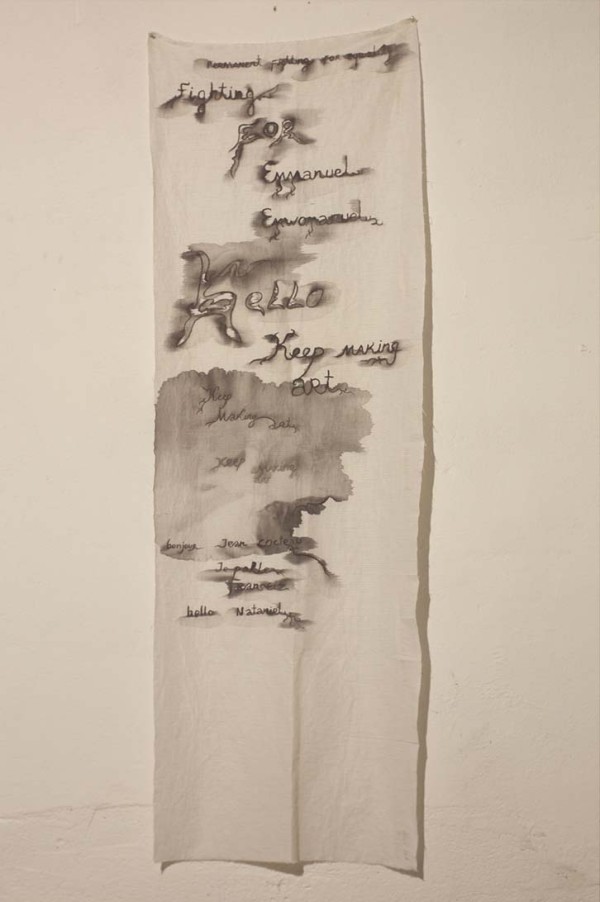 Permanent fighting for equality
Fighting
FOR
Emmanuel
Emwomanuel
Hello
Keep making
art
Keep
Making art
Keep making
bonjour Jean
Je parler
Francais
hello Nataniel